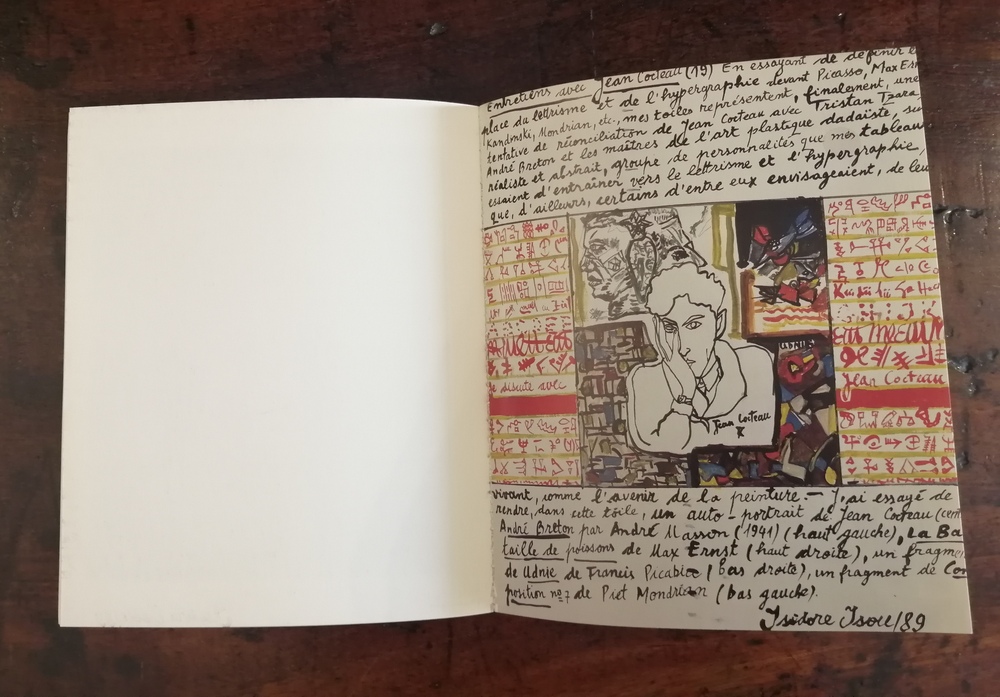 Entretiens avec Jean Cocteau (19) En essayant de définir
place du lettrisme et de l'hypergraphie devant Picasso, Max
Kandinski, Mondrian, etc., mes toiles représentent, finalement, une
tentative de réconciliation de Jean Cocteau avec Tristan Tzara,
André Breton et les maîtres de l'art plastique dadaïste, su
réaliste et abstrait, groupe de personnalités que mes tableau
essaient d'entraîner vers le lettrisme et l'hypergraphie,
que, d'ailleurs, certains d'entre eux envisageaient, de leu
UDNIE
je discute avec
Jean Cocteau
Jean Cocteau
vivant, comme l'avenir de la peinture. — J'ai essayé de
rendre, dans cette toile, un auto-portrait de Jean Cocteau (cent
André Breton par André Masson (1941) (haut gauche), La Ba
taille de poissons de Max Ernst (haut droite), un fragme
de Udnie de Francis Picabia (bas droite), un fragment de Com
position nº 7 de Piet Mondrian (bas gauche).
Isidore Isou/89